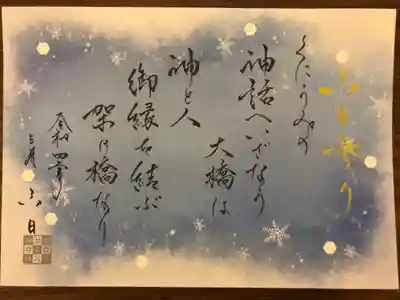 くにうみの
神話へいざなう
大橋は
神と人
御縁を結ぶ
架け橋なり
令和四年
三月六日